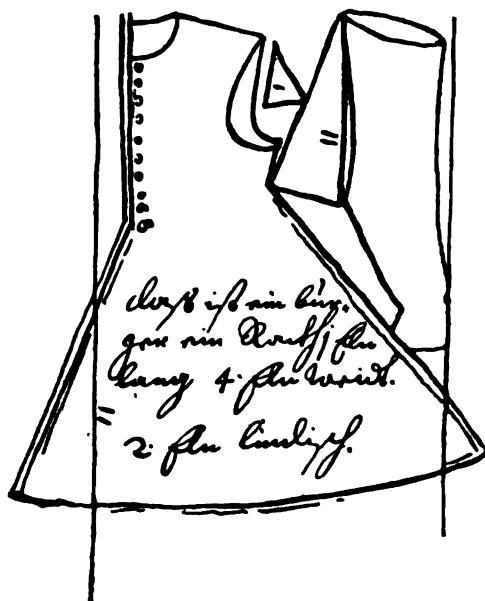 daß ist ein bür-
ger ein Rockh j Eln
lang 4. Eln weidt.
2: Eln lindisch.